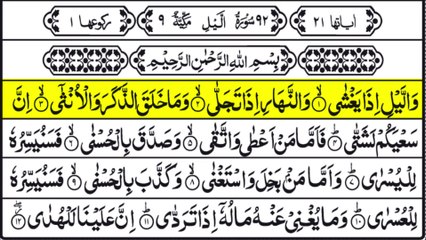 اٰیاتها ٢١ ٩٢ سُوْرَةُ الَّيْلِ مَكِّيَّةٌ ٩ رکوعها ١
بِسْمِ اللهِ الرَّحْمٰنِ الرَّحِيْمِ
وَالَّيْلِ اِذَا يَغْشٰى ۙ﴿١﴾ وَالنَّهَارِ اِذَا تَجَلّٰى ۙ﴿٢﴾ وَمَا خَلَقَ الذَّكَرَ وَالْاُنْثٰٓى ۙ﴿٣﴾ اِنَّ
سَعْيَكُمْ لَشَتّٰى ؕ﴿٤﴾ فَاَمَّا مَنْ اَعْطٰى وَاتَّقٰى ۙ﴿٥﴾ وَصَدَّقَ بِالْحُسْنٰى ۙ﴿٦﴾ فَسَنُيَسِّرُهٗ
لِلْيُسْرٰى ؕ﴿٧﴾ وَاَمَّا مَنْۢ بَخِلَ وَاسْتَغْنٰى ۙ﴿٨﴾ وَكَذَّبَ بِالْحُسْنٰى ۙ﴿٩﴾ فَسَنُيَسِّرُهٗ
لِلْعُسْرٰى ؕ﴿١٠﴾ وَمَا يُغْنِىْ عَنْهُ مَالُهٗٓ اِذَا تَرَدّٰى ؕ﴿١١﴾ اِنَّ عَلَيْنَا لَلْهُدٰى ۖ﴿١٢﴾